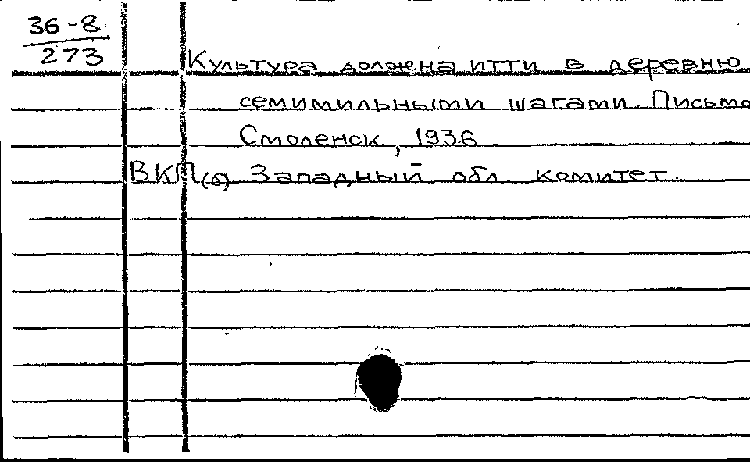 36-8
273
Культура должна итти в деревню
семимильными шагами. Письмо
Смоленск, 1936
ВКП(б) Западный обл. комитет.